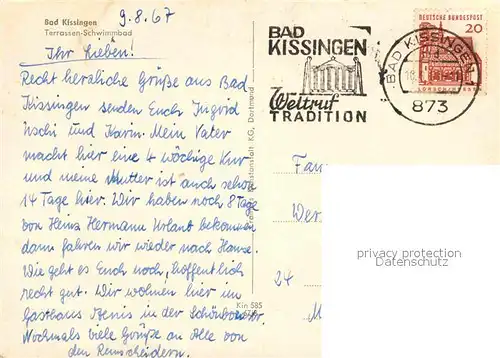 Bad Kissingen
Terrassen-Schwimmbad
9.8.67
Ihr Lieben!
Recht herzliche Grüße aus Bad
Kissingen senden Euch Ingrid
Uschi und Karin. Mein Vater
macht hier eine 4 wöchige Kur
und meine Mutter ist auch schon
14 Tage hier. Wir haben noch 8 Tage
von Heinz Hermann Urlaub bekommen
dann fahren wir wieder nach Hause.
Wie geht es Euch noch, hoffentlich
recht gut. Wir wohnen hier im
Gasthaus in der
Nochmals viele Grüße an Alle von
den Remscheidern.
BAD
KISSINGEN
Weltruf
TRADITION
DEUTSCHE BUNDESPOST
20
BAD KISSINGEN
873
KG, Dortmund
Kin 585
Fam
Wer
24
M
privacy protection
Datenschutz